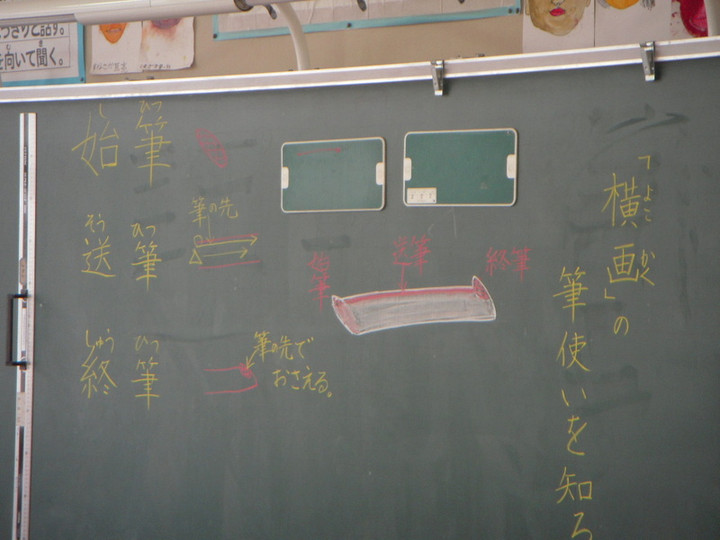 「横画」の
よこ かく
筆使いを知る
始筆
し ひつ
送筆
そう ひつ
筆の先
終筆
しゅう ひつ
筆の先で
おさえる。
始筆
送筆
終筆
を向いて聞く。